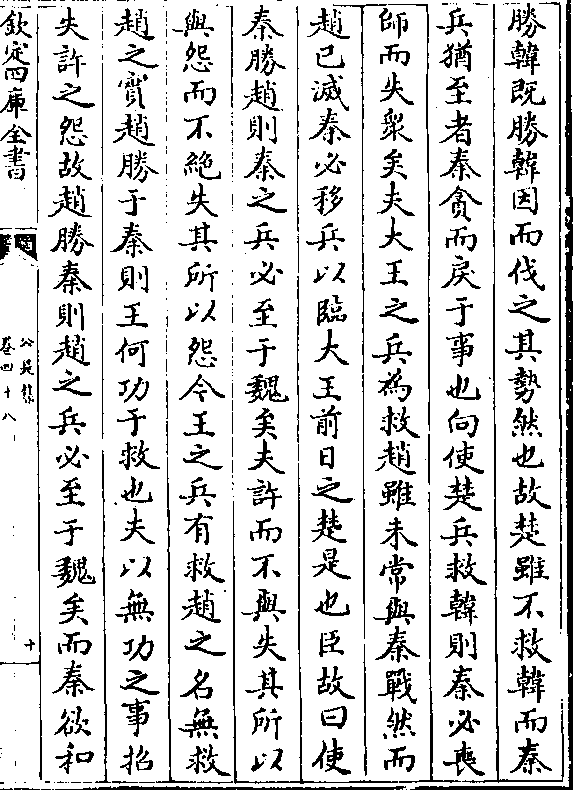 勝韓既勝韓因而伐之其勢然也故楚雖不救韓而秦
兵猶至者秦貪而戾于事也向使楚兵救韓則秦必喪
師而失衆矣夫大王之兵為救趙雖未常與秦戰然而
趙已滅秦必移兵以臨大王前日之楚是也臣故曰使
秦勝趙則秦之兵必至于魏矣夫許而不與失其所以
與怨而不絶失其所以怨令王之兵有救趙之名無救
趙之實趙勝于秦則王何功于救也夫以無功之事招
失許之怨故趙勝秦則趙之兵必至于魏矣而秦欲和
欽定四庫全書
公是集
卷四十八
十